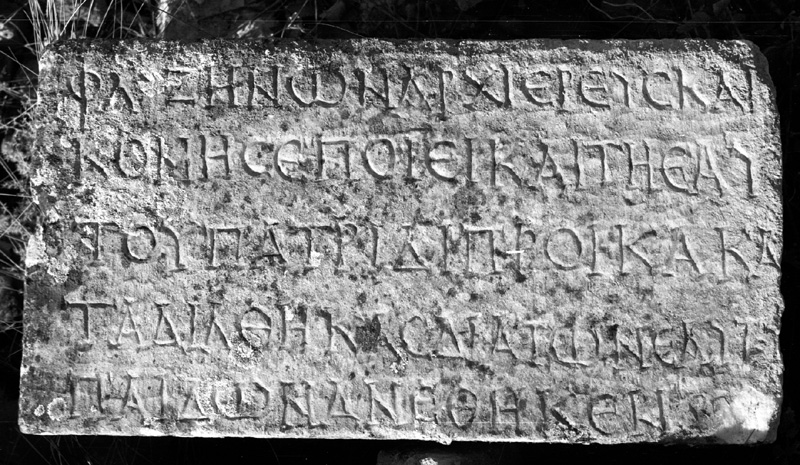 ΦΛΖΗΝΩΝΑΡΧΙΕΡΕΥϹΚΑΙ
ΚΟΝΗϹΕΠΟΙΕΙΚΑΙΤΗΕΑΥ
ΤΟΥΠΑΤΡΙΔΙΠΡΟΙΚΑΚΑ
ΤΑΔΙΑΘΗΚΑϹΔΙΑΤΩΝΕΑΥΤ
ΠΑΙΔΩΝΑΝΕΘΗΚΕΝ